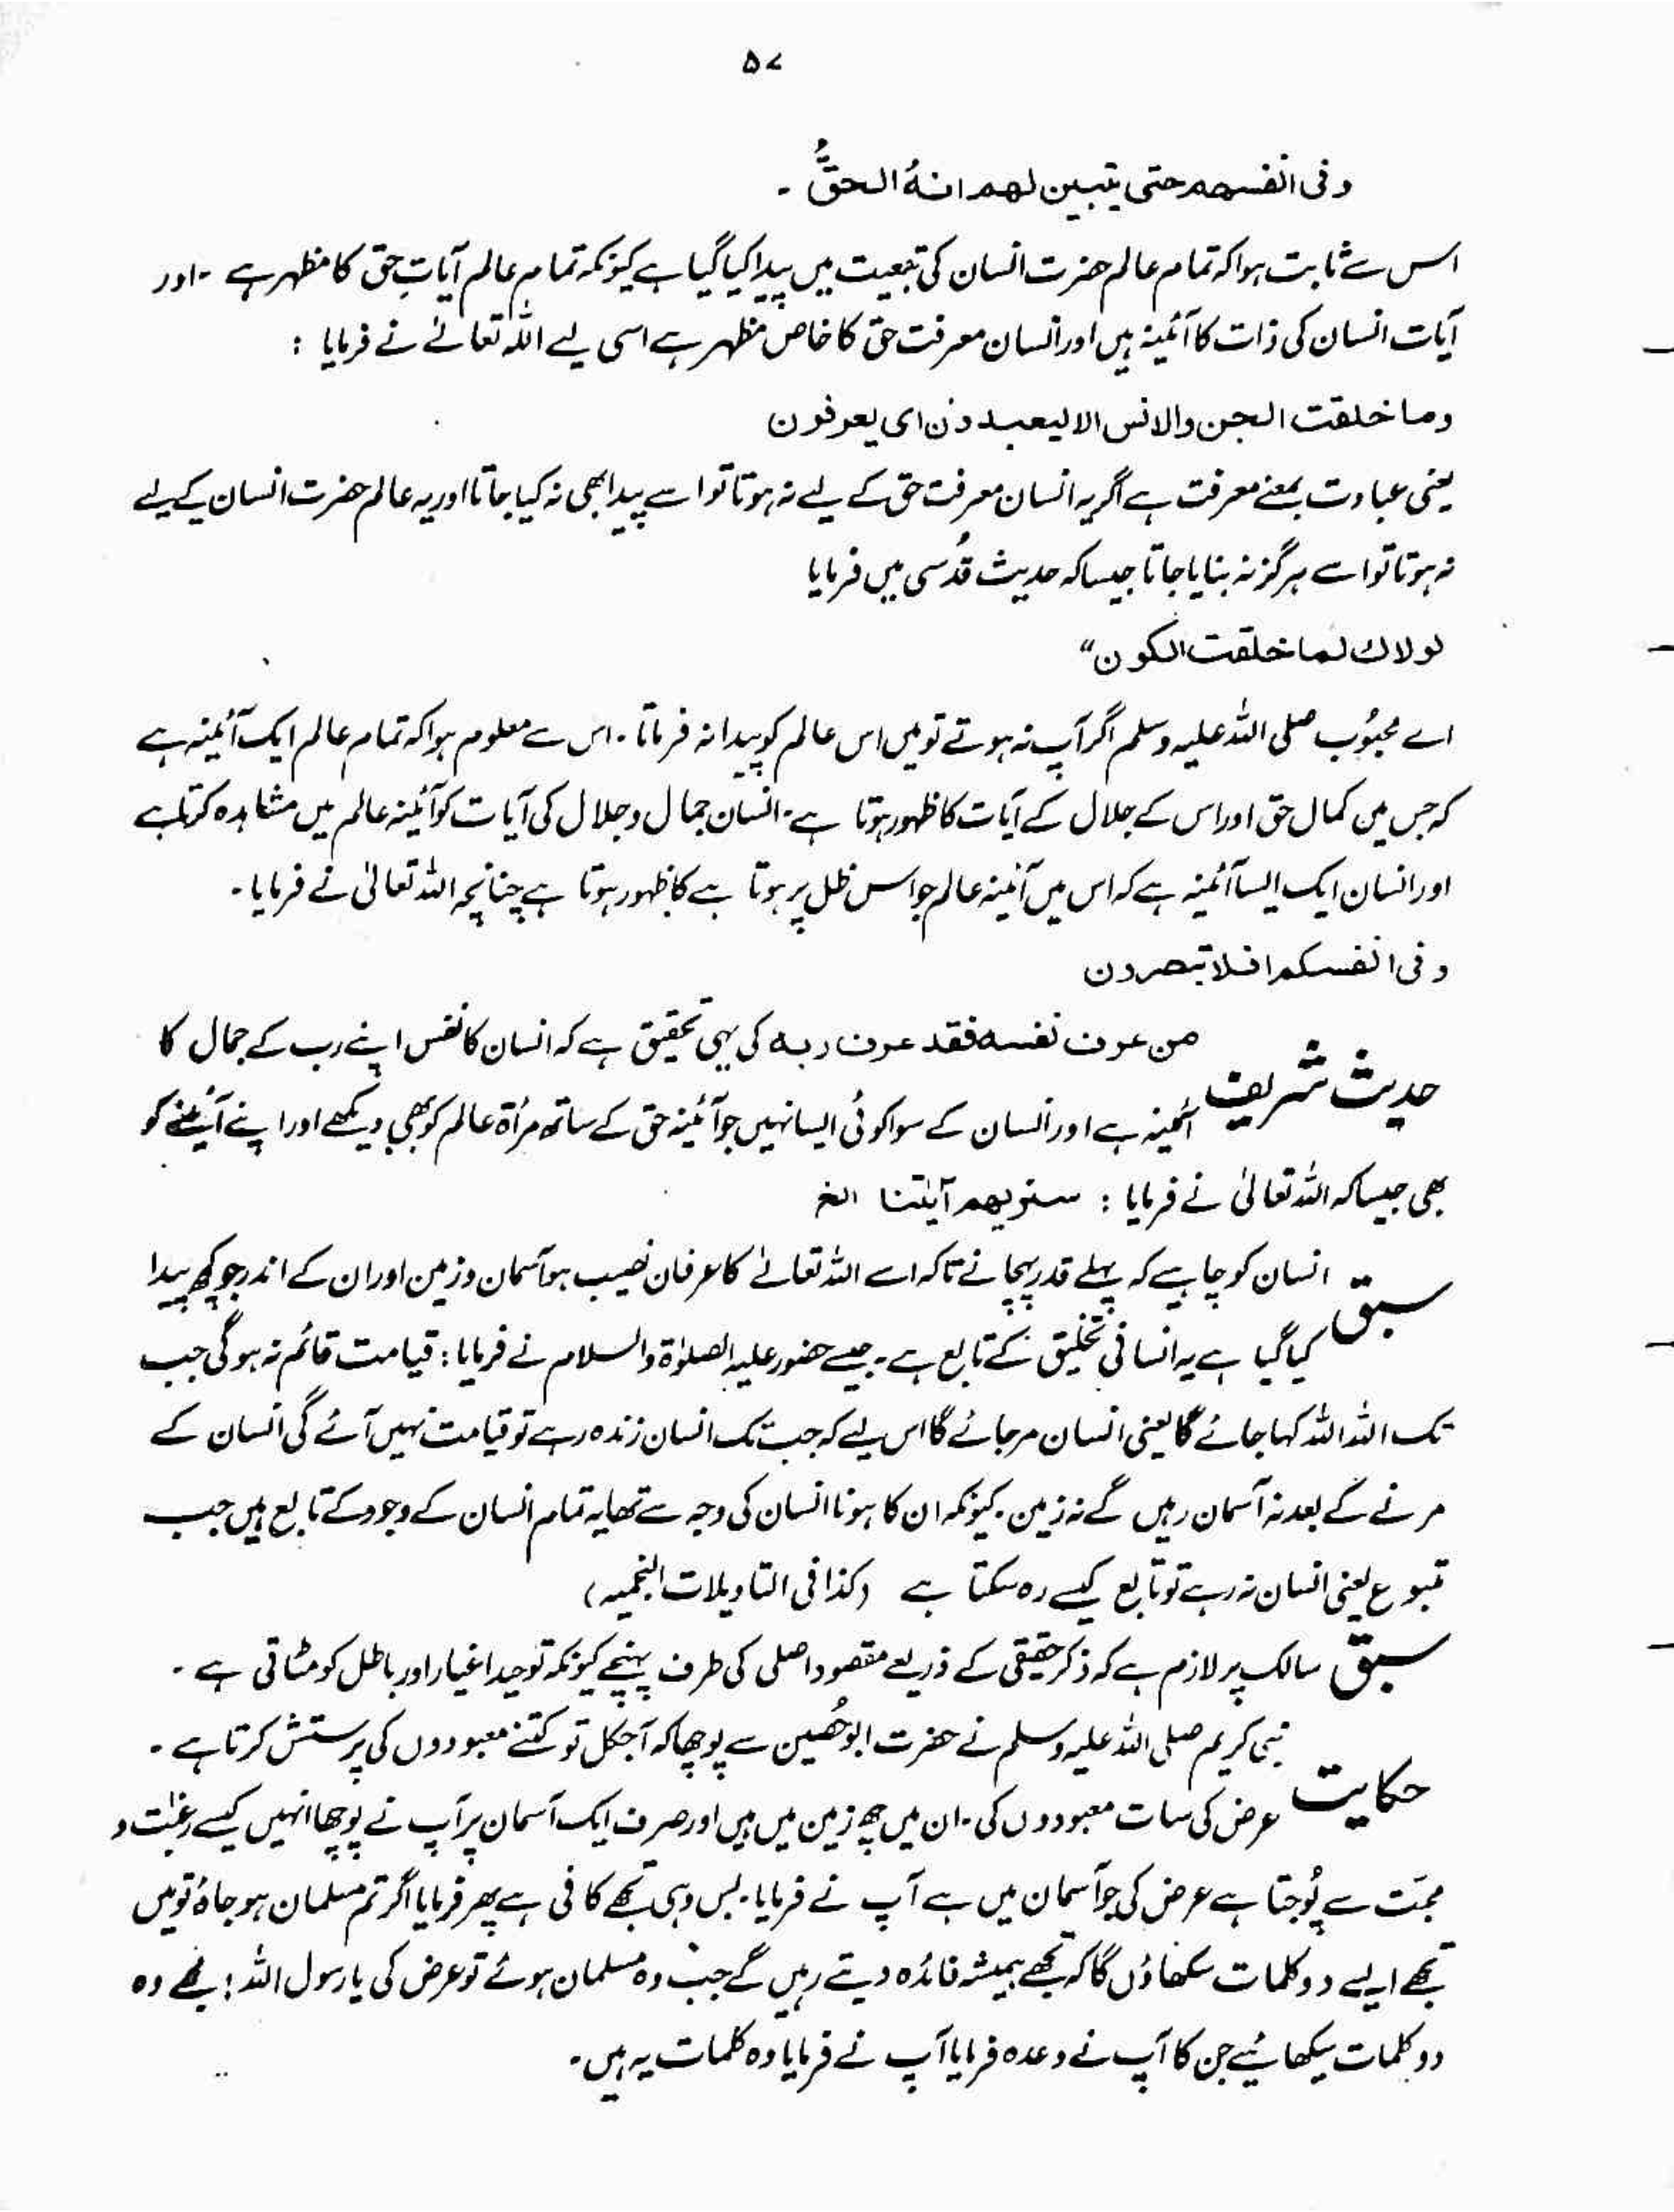 ۵۷
وفی انفسهم حتی یتبین لهم انهُ الحقُّ ۔
اس سے ثابت ہوا کہ تمام عالم حضرت انسان کی تبعیت میں پیدا کیا گیا ہے کیونکہ تمام عالم آیاتِ حق کا مظہر ہے ۔ اور
آیات انسان کی ذات کا آئینہ ہیں اور انسان معرفت حق کا خاص مظہر ہے اسی لیے اللہ تعالےٰ نے فرمایا :
وما خلقت الجن والانس الا لیعبدون ای یعرفون
یعنی عبادت بمعنے معرفت ہے اگر یہ انسان معرفت حق کے لیے نہ ہوتا تو اسے پیدا بھی نہ کیا جاتا اور یہ عالم حضرت انسان کے لیے
نہ ہوتا تو اسے ہرگز نہ بنایا جاتا جیسا کہ حدیث قُدسی میں فرمایا
لولاك لما خلقت الكون“
اے محبُوب صلی اللہ علیہ وسلم اگر آپ نہ ہوتے تو میں اس عالم کو پیدا نہ فرماتا ۔ اس سے معلوم ہوا کہ تمام عالم ایک آئینہ ہے
کہ جس میں کمال حق اور اس کے جلال کے آیات کا ظہور ہوتا ہے ۔ انسان جمال و جلال کی آیات کو آئینہ عالم میں مشاہدہ کرتا ہے
اور انسان ایک ایسا آئینہ ہے کہ اس میں آئینہ عالم جو اس ظل پر ہوتا ہے کا ظہور ہوتا ہے چنانچہ اللہ تعالیٰ نے فرمایا ۔
وفی انفسکم افلا تبصرون
حدیث شریف من عرف نفسه فقد عرف ربه کی یہی تحقیق ہے کہ انسان کا نفس اپنے رب کے جمال کا
آئینہ ہے اور انسان کے سوا کوئی ایسا نہیں جو آئینہ حق کے ساتھ مرأۃ عالم کو بھی دیکھے اور اپنے آئینے کو
بھی جیسا کہ اللہ تعالیٰ نے فرمایا : سنریهم آیٰتنا الخ
سبق انسان کو چاہیے کہ پہلے قدر پہچانے تاکہ اسے اللہ تعالےٰ کا عرفان نصیب ہو آسمان و زمین اور ان کے اندر جو کچھ پیدا
کیا گیا ہے یہ انسانی تخلیق کے تابع ہے ۔ جیسے حضور علیہ الصلوٰۃ والسلام نے فرمایا : قیامت قائم نہ ہوگی جب
تک اللہ اللہ کہا جائے گا یعنی انسان مر جائے گا اس لیے کہ جب تک انسان زندہ رہے تو قیامت نہیں آئے گی انسان کے
مرنے کے بعد نہ آسمان رہیں گے نہ زمین ۔ کیونکہ ان کا ہونا انسان کی وجہ سے تھا یہ تمام انسان کے وجود کے تابع ہیں جب
تبوع یعنی انسان نہ رہے تو تابع کیسے رہ سکتا ہے (کذا فی التاویلات النجمیہ)
سبق سالک پر لازم ہے کہ ذکر حقیقی کے ذریعے مقصود اصلی کی طرف پہنچے کیونکہ توحید اغیار اور باطل کو مٹاتی ہے ۔
حکایت نبی کریم صلی اللہ علیہ وسلم نے حضرت ابو حُصین سے پوچھا کہ آجکل تو کتنے معبودوں کی پرستش کرتا ہے ۔
عرض کی سات معبودوں کی ۔ ان میں چھ زمین میں ہیں اور صرف ایک آسمان پر آپ نے پوچھا انہیں کیسے رغبت و
محبّت سے پُوجتا ہے عرض کی جو آسمان میں ہے آپ نے فرمایا ۔ بس وہی تجھے کافی ہے پھر فرمایا اگر تم مسلمان ہو جاؤ تو میں
تجھے ایسے دو کلمات سکھاؤں گا کہ تجھے ہمیشہ فائدہ دیتے رہیں گے جب وہ مسلمان ہوئے تو عرض کی یا رسول اللہ ! مجھے وہ
دو کلمات سیکھائیے جن کا آپ نے وعدہ فرمایا آپ نے فرمایا وہ کلمات یہ ہیں ۔